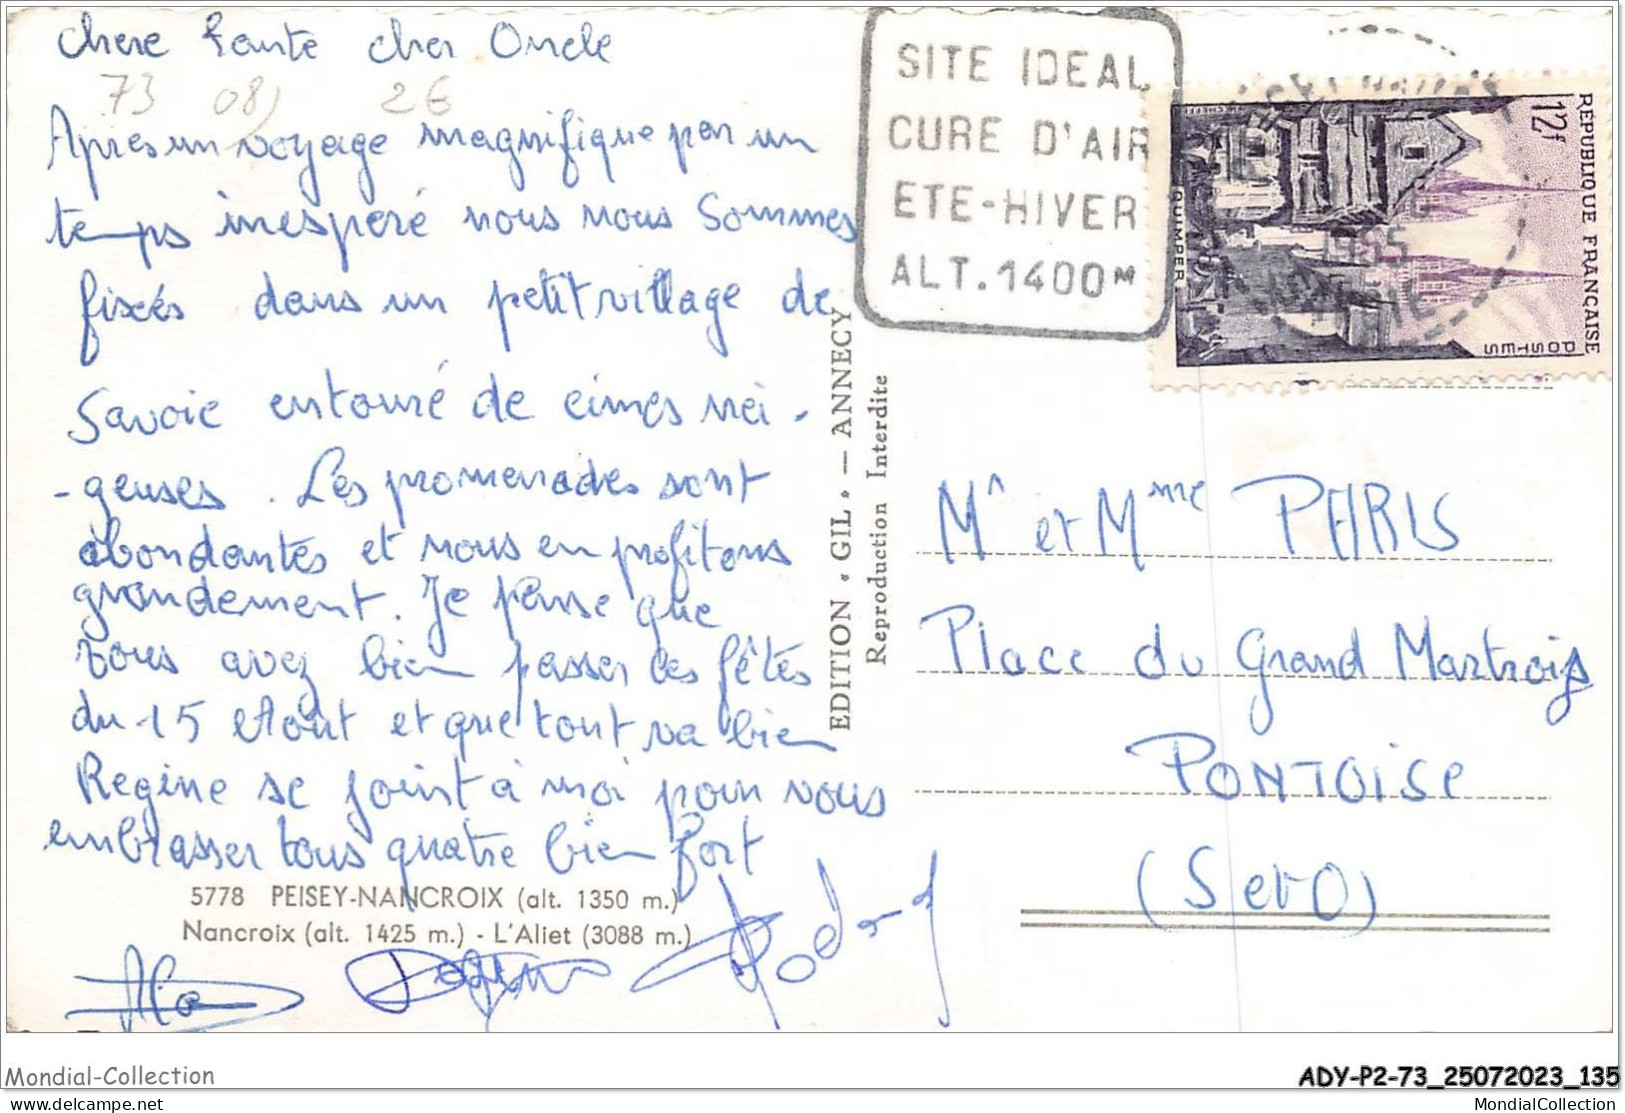 Chere Tante cher Oncle
73 08) 26
Apres un voyage magnifique par un
temps inespéré nous nous sommes
fixés dans un petit village de
Savoie entouré de cimes nei-
-geuses. Les promenades sont
abondantes et nous en profitons
grandement. Je pense que
vous avez bien passer les fêtes
du 15 Aout et que tout va bien
Regine se joint à moi pour vous
embrasser tous quatre bien fort
5778 PEISEY-NANCROIX (alt. 1350 m.)
Nancroix (alt. 1425 m.) - L'Aliet (3088 m.)
EDITION « GIL » — ANNECY
Reproduction Interdite
SITE IDEAL
CURE D'AIR
ETE-HIVER
ALT. 1400M
REPUBLIQUE FRANÇAISE
12f
POSTES
QUIMPER
1955
Mr et Mme PERIS
Place du Grand Martroys
PONTOISE
(S et O)
Mondial-Collection
ADY-P2-73_25072023_135
https://www.delcampe.net
MondialCollection